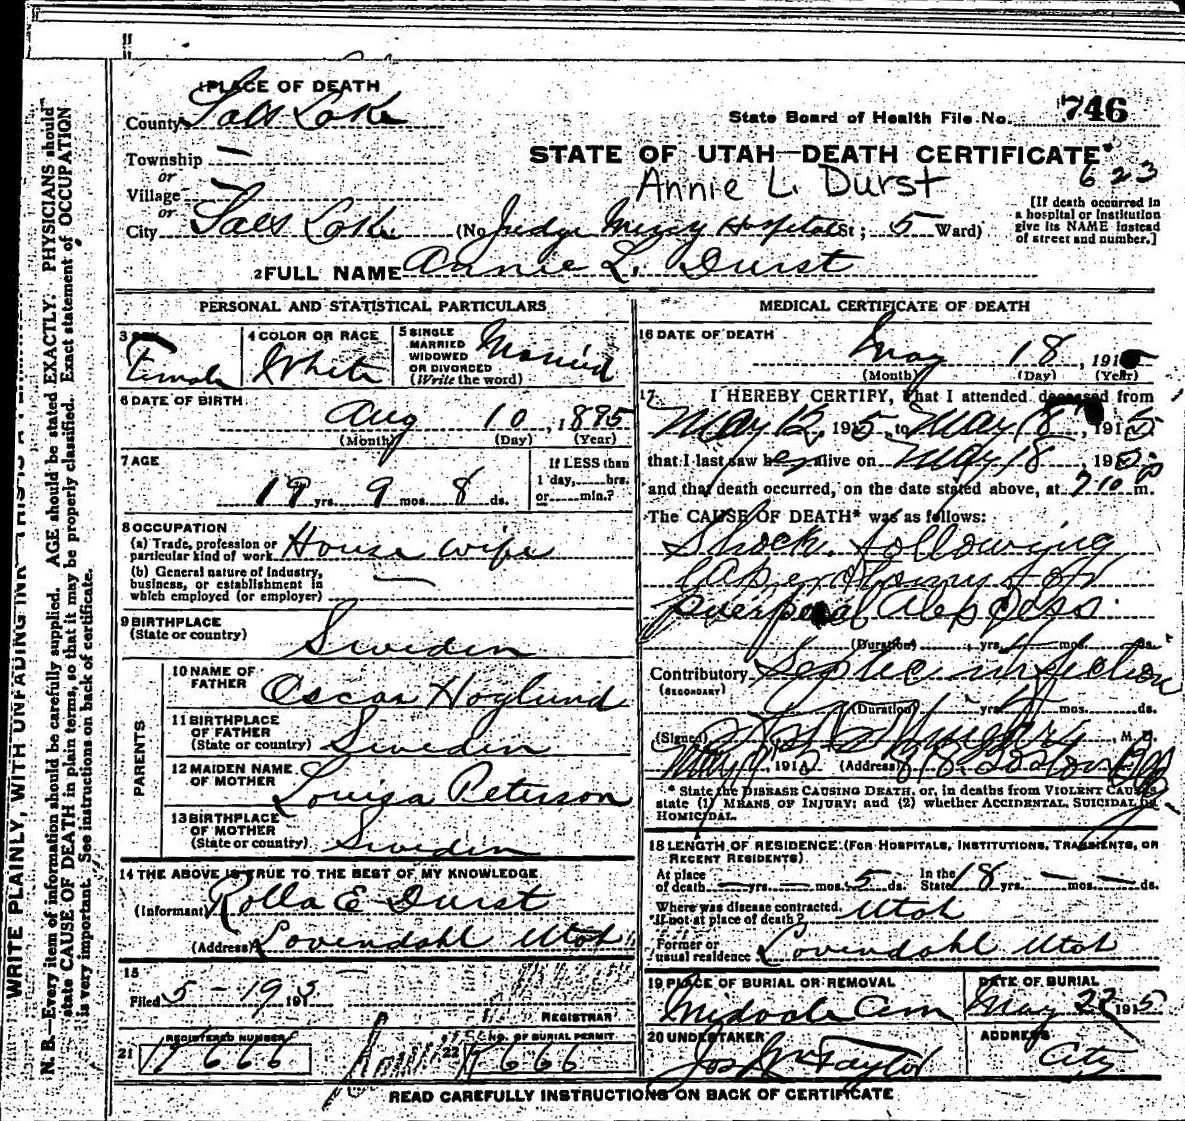 1 PLACE OF DEATH
County Salt Lake
State Board of Health File No. 746
Township —
or
STATE OF UTAH—DEATH CERTIFICATE
623
Annie L. Durst
Village —
or
City Salt Lake (No Judge Mercy Hospital St; 5 Ward)
[If death occurred in
a hospital or institution
give its NAME instead
of street and number.]
2 FULL NAME Annie L. Durst
PERSONAL AND STATISTICAL PARTICULARS
3
Female
4 COLOR OR RACE
White
5 SINGLE
MARRIED
WIDOWED
OR DIVORCED
(Write the word)
Married
6 DATE OF BIRTH
Aug 10, 1895
(Month) (Day) (Year)
7 AGE
19 yrs. 9 mos. 8 ds.
If LESS than
1 day, hrs.
or min.?
8 OCCUPATION
(a) Trade, profession or
particular kind of work House wife
(b) General nature of industry,
business, or establishment in
which employed (or employer) —
9 BIRTHPLACE
(State or country) Sweden
PARENTS
10 NAME OF
FATHER Oscar Hoglund
11 BIRTHPLACE
OF FATHER
(State or country) Sweden
12 MAIDEN NAME
OF MOTHER Louisa Peterson
13 BIRTHPLACE
OF MOTHER
(State or country) Sweden
14 THE ABOVE IS TRUE TO THE BEST OF MY KNOWLEDGE
(Informant) Rolla E Durst
(Address) Lovendahl Utah
15
Filed 5-19 1915
REGISTRAR
REGISTERED NUMBER
21
NO. OF BURIAL PERMIT
22
MEDICAL CERTIFICATE OF DEATH
16 DATE OF DEATH
May 18, 191
(Month) (Day) (Year)
17 I HEREBY CERTIFY, that I attended deceased from
May 12, 1915, to May 18, 1915
that I last saw her alive on May 18, 1915
and that death occurred, on the date stated above, at 710 P m.
The CAUSE OF DEATH* was as follows:
Shock following
for
puerperal Abscess.
(Duration) yrs. mos. ds.
Contributory Septic infection
(SECONDARY)
(Duration) yrs. mos. ds.
(Signed) , M. D.
May , 191 (Address) 818 Boston Bldg
* State the DISEASE CAUSING DEATH, or, in deaths from VIOLENT CAUSES,
state (1) MEANS OF INJURY; and (2) whether ACCIDENTAL, SUICIDAL OR
HOMICIDAL.
18 LENGTH OF RESIDENCE (FOR HOSPITALS, INSTITUTIONS, TRANSIENTS, OR
RECENT RESIDENTS)
At place
of death — yrs. — mos. 5 ds.
In the
State 18 yrs. — mos. — ds.
Where was disease contracted,
if not at place of death? Utah
Former or
usual residence Lovendahl Utah
19 PLACE OF BURIAL OR REMOVAL
Midvale Cem
DATE OF BURIAL
May 22 1915
20 UNDERTAKER
Jos Wm Taylor
ADDRESS
City
READ CAREFULLY INSTRUCTIONS ON BACK OF CERTIFICATE
N. B.—Every item of information should be carefully supplied. AGE should be stated EXACTLY. PHYSICIANS should
state CAUSE OF DEATH in plain terms, so that it may be properly classified. Exact statement of OCCUPATION
is very important. See instructions on back of certificate.
WRITE PLAINLY, WITH UNFADING INK—THIS IS A